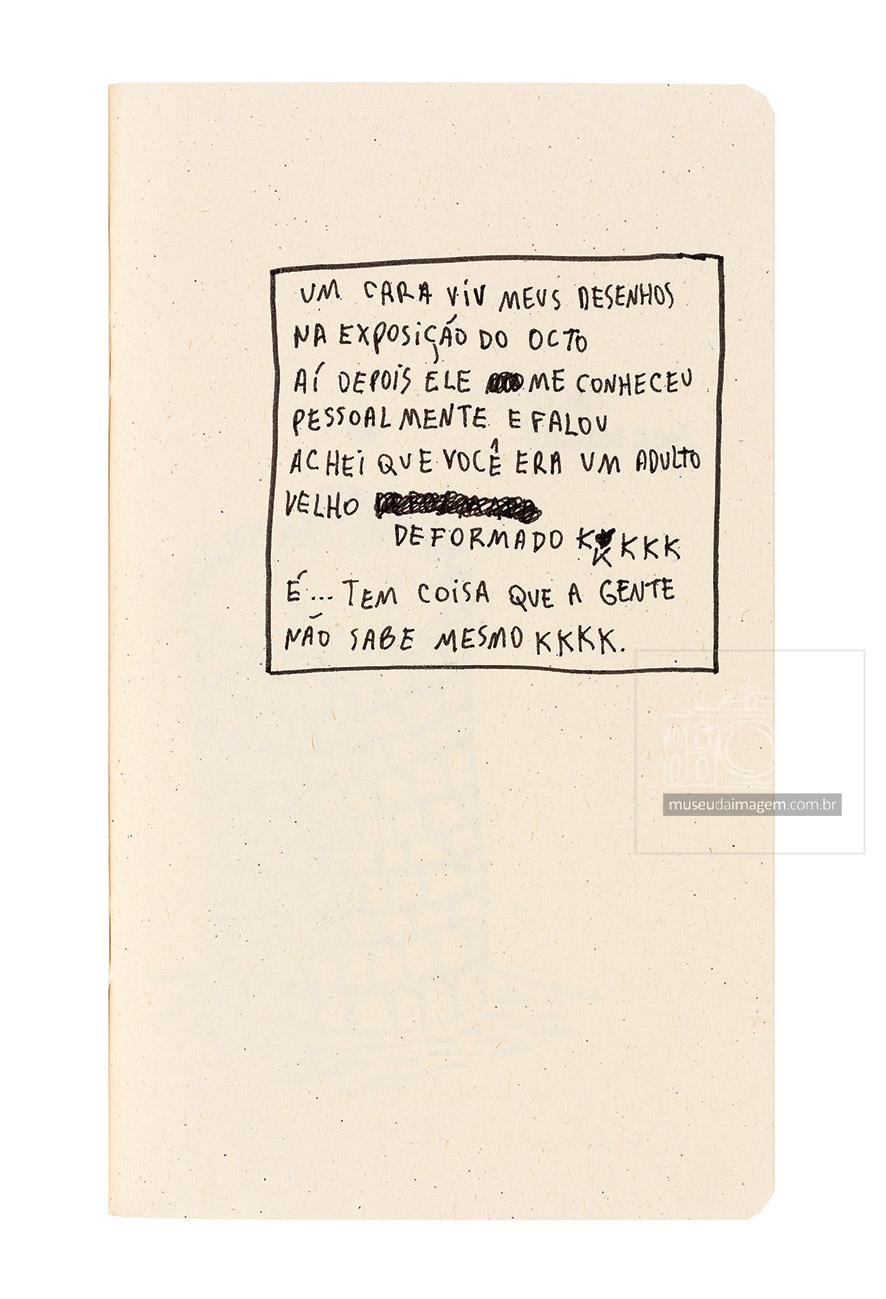 UM CARA VIU MEUS DESENHOS
NA EXPOSIÇÃO DO OCTO
AÍ DEPOIS ELE ME CONHECEU
PESSOALMENTE E FALOU
ACHEI QUE VOCÊ ERA UM ADULTO
VELHO
DEFORMADO KKKKK
É... TEM COISA QUE A GENTE
NÃO SABE MESMO KKKK.
museudaimagem.com.br